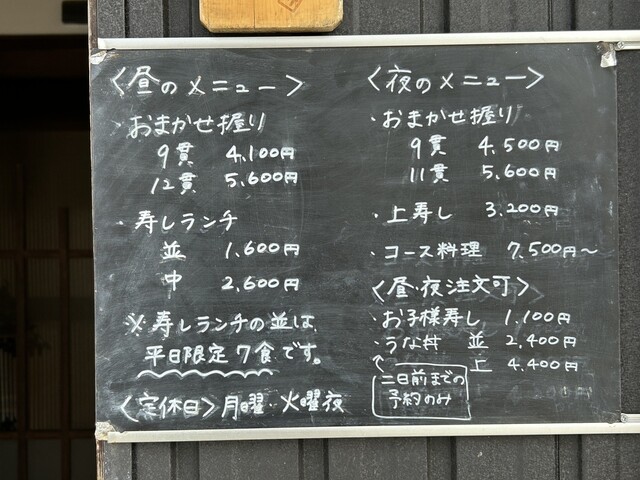 〈昼のメニュー〉
・おまかせ握り
9貫 4,100円
12貫 5,600円
・寿しランチ
並 1,600円
中 2,600円
※寿しランチの並は
平日限定7食です。
〈定休日〉月曜・火曜夜
〈夜のメニュー〉
・おまかせ握り
9貫 4,500円
11貫 5,600円
・上寿し 3,200円
・コース料理 7,500円〜
〈昼・夜注文可〉
・お子様寿し 1,100円
・うな丼 並 2,400円
上 4,400円
二日前までの
予約のみ